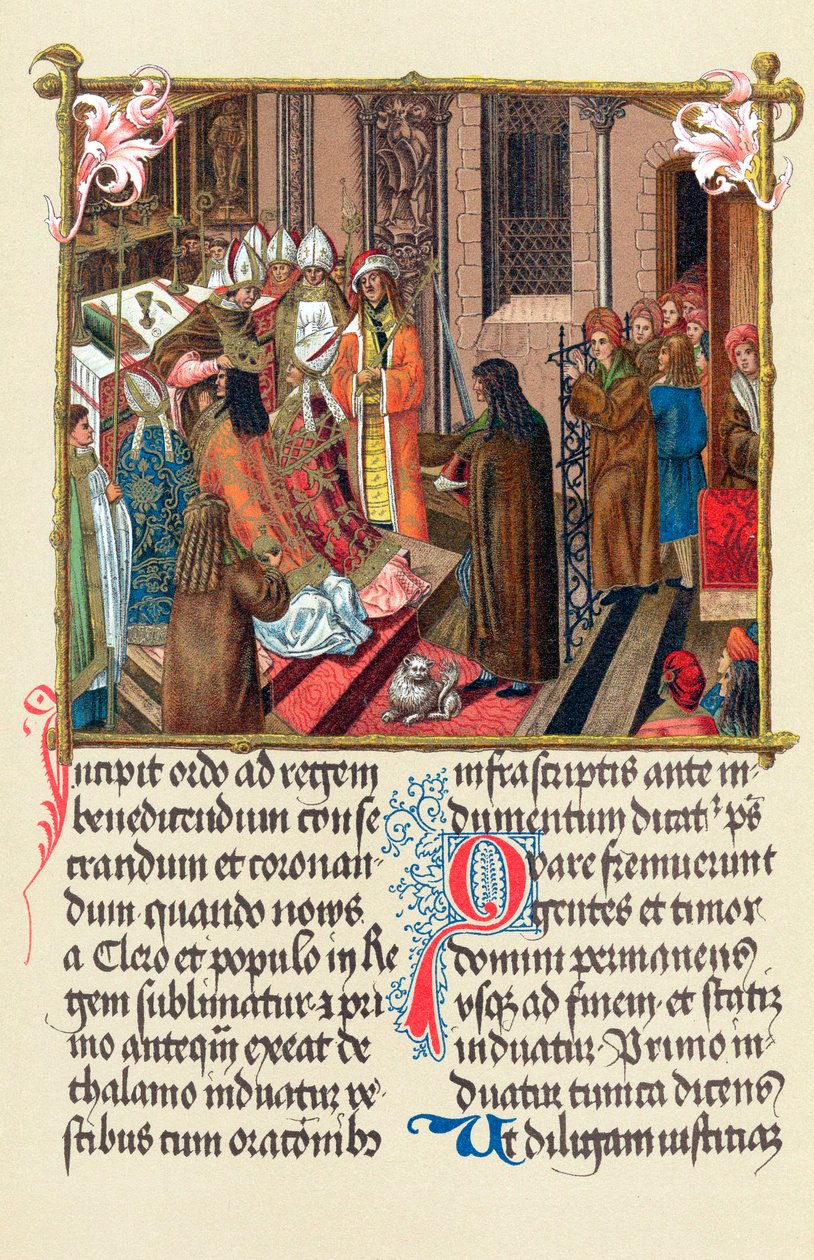 Incipit ordo ad regem
benedicendum conse
crandum et coronan-
dum. quando novus
a Clero et populo in Re
gem sublimatur. ⁊ pri
mo anteqm̄ exeat de
thalamo induatur ve-
stibus cum oracōnibꝫ
infrascriptis ante in-
dumentum dicatᷣ ps̄
Quare fremuerunt
gentes et timor
domini permanens
vsqꝫ ad finem. et statiꝫ
induatur. Primo in-
duatur tunica dicens
Ut diligam iusticiaꝫ